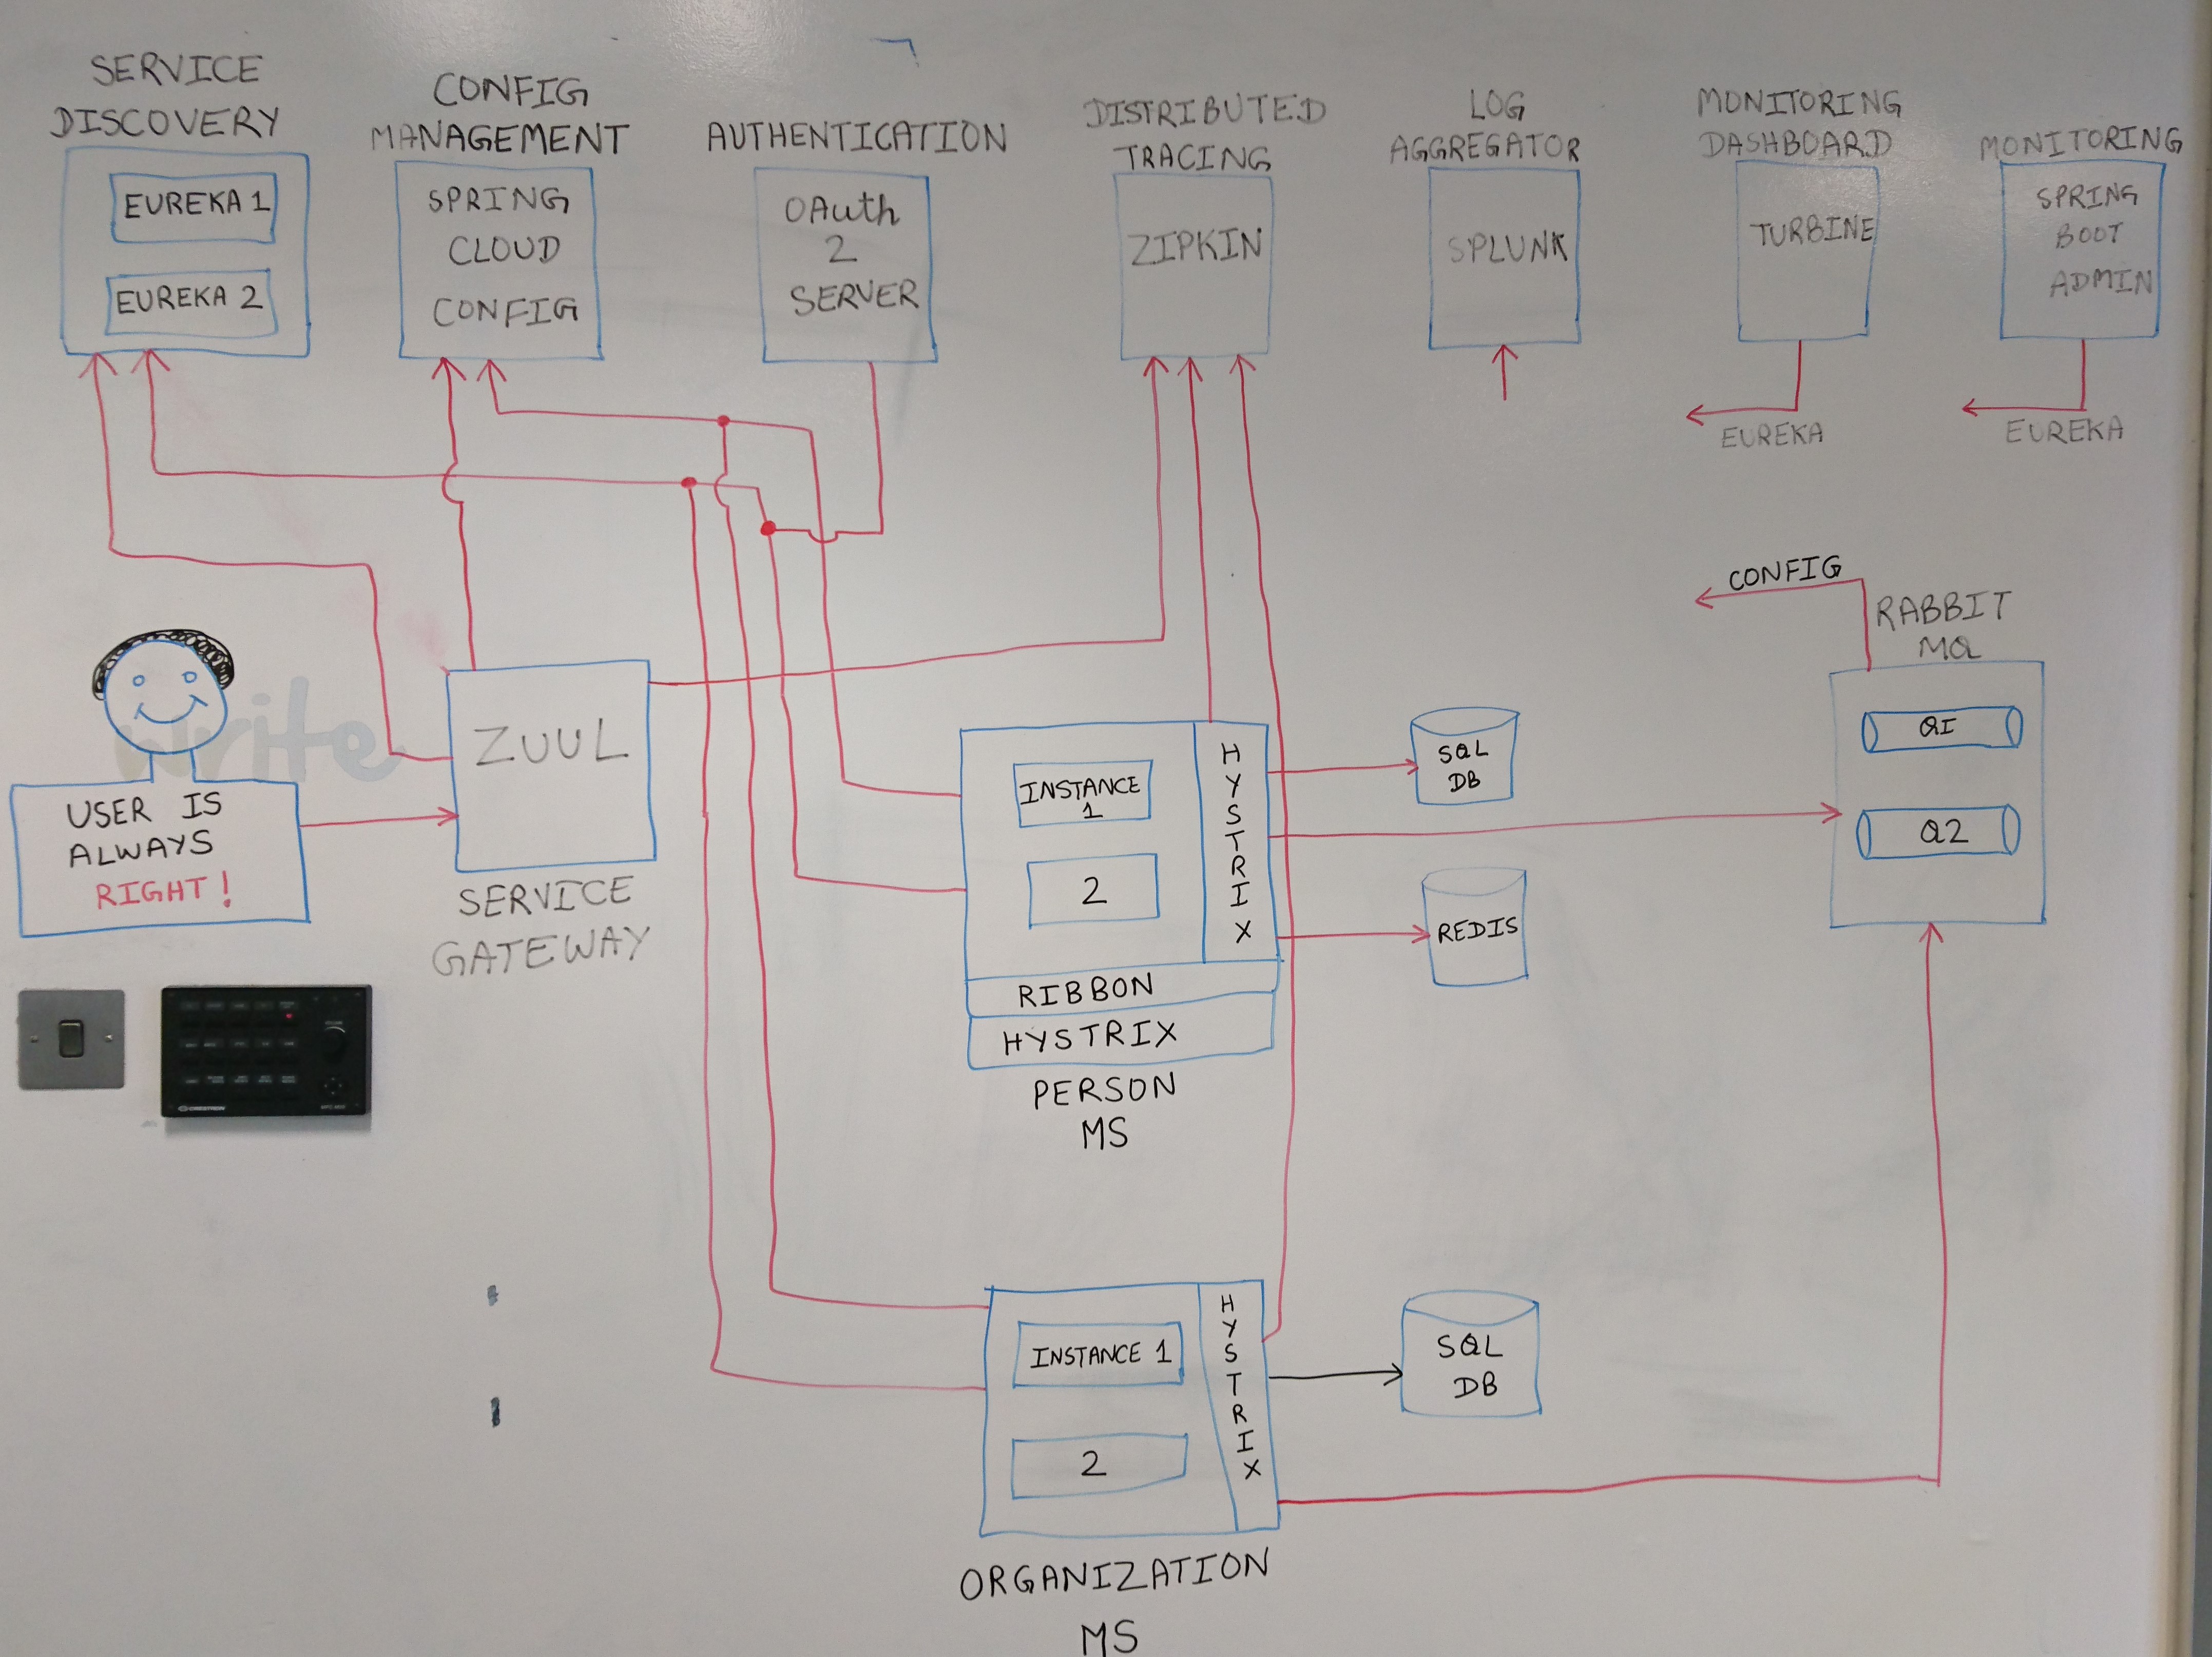 SERVICE
DISCOVERY
EUREKA 1
EUREKA 2
CONFIG
MANAGEMENT
SPRING
CLOUD
CONFIG
AUTHENTICATION
OAuth
2
SERVER
DISTRIBUTED
TRACING
ZIPKIN
LOG
AGGREGATOR
SPLUNK
MONITORING
DASHBOARD
TURBINE
EUREKA
MONITORING
SPRING
BOOT
ADMIN
EUREKA
write
USER IS
ALWAYS
RIGHT!
ZUUL
SERVICE
GATEWAY
CRESTRON
INSTANCE
1
2
HYSTRIX
RIBBON
HYSTRIX
PERSON
MS
SQL
DB
REDIS
CONFIG
RABBIT
MQ
Q1
Q2
INSTANCE 1
2
HYSTRIX
ORGANIZATION
MS
SQL
DB